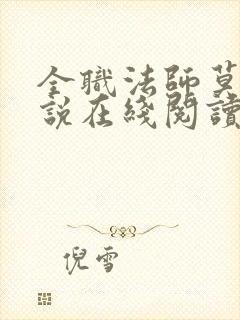 全職法師莫
說在綫閱讀
倪雪